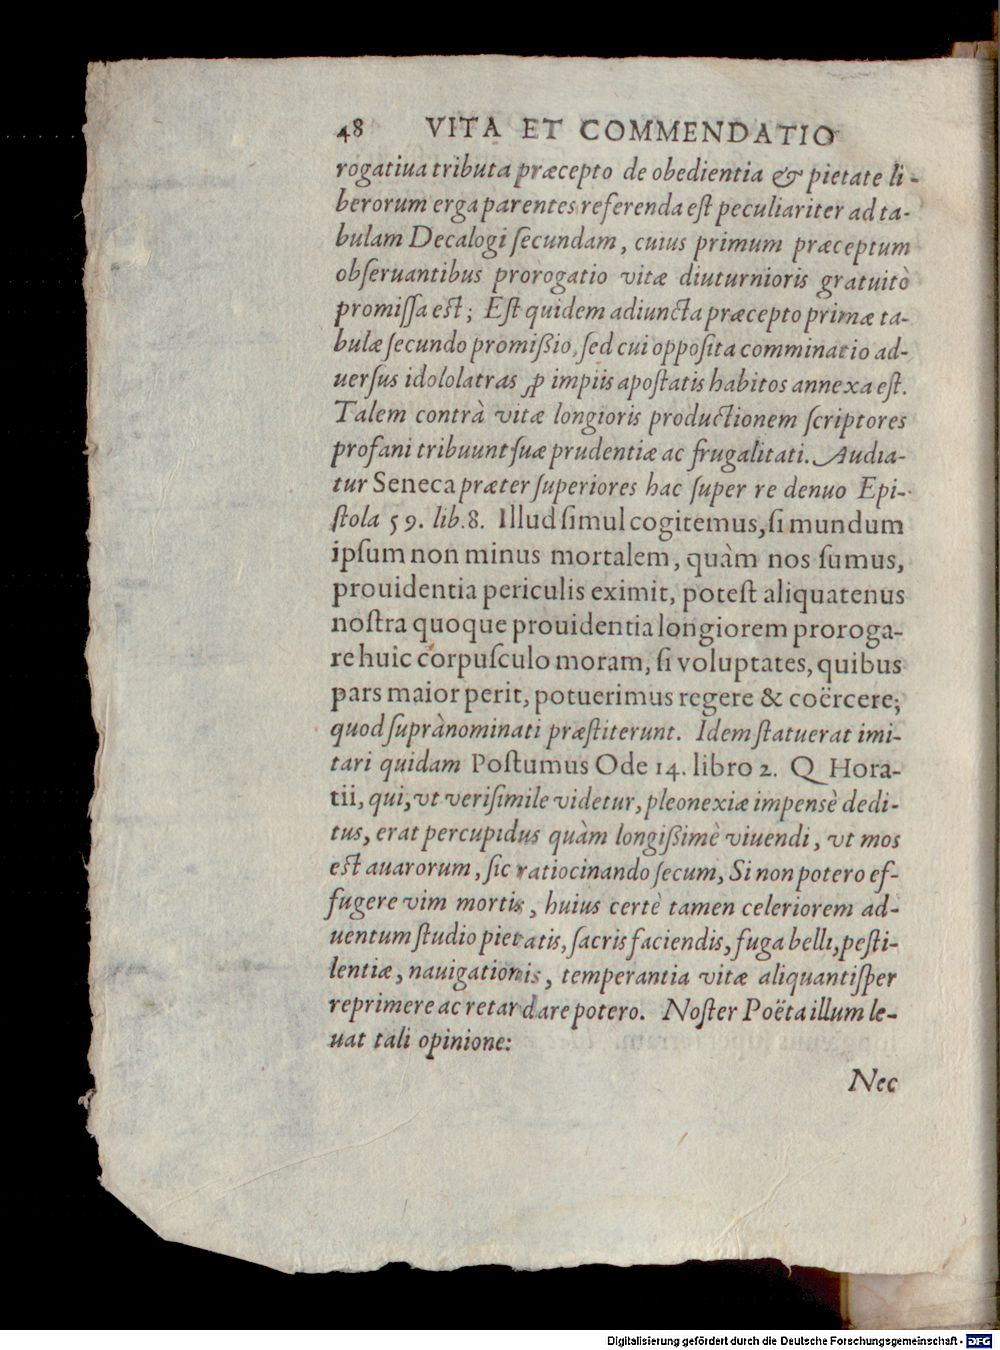 48 VITA ET COMMENDATIO
rogatiua tributa præcepto de obedientia & pietate li-
berorum erga parentes referenda eſt peculiariter ad ta-
bulam Decalogi ſecundam, cuius primum præceptum
obſeruantibus prorogatio vitæ diuturnioris gratuitò
promiſſa eſt; Eſt quidem adiuncta præcepto primæ ta-
bulæ ſecundo promiſsio, ſed cui oppoſita comminatio ad-
uerſus idololatras ꝓ impiis apoſtatis habitos annexa eſt.
Talem contrà vitæ longioris productionem ſcriptores
profani tribuunt ſuæ prudentiæ ac frugalitati. Audia-
tur Seneca præter ſuperiores hac ſuper re denuo Epi-
ſtola 59. lib.8. Illud ſimul cogitemus, ſi mundum
ipſum non minus mortalem, quàm nos ſumus,
prouidentia periculis eximit, poteſt aliquatenus
noſtra quoque prouidentia longiorem proroga-
re huic corpuſculo moram, ſi voluptates, quibus
pars maior perit, potuerimus regere & coërcere;
quod ſuprà nominati præſtiterunt. Idem ſtatuerat imi-
tari quidam Poſtumus Ode 14. libro 2. Q Hora-
tii, qui, vt veriſimile videtur, pleonexiæ impensè dedi-
tus, erat percupidus quàm longiſsimè viuendi, vt mos
eſt auarorum, ſic ratiocinando ſecum, Si non potero ef-
fugere vim mortis, huius certè tamen celeriorem ad-
uentum ſtudio pietatis, ſacris faciendis, fuga belli, peſti-
lentiæ, nauigationis, temperantia vitæ aliquantiſper
reprimere ac retardare potero. Noſter Poëta illum le-
uat tali opinione:
Nec
Digitalisierung gefördert durch die Deutsche Forschungsgemeinschaft - DFG